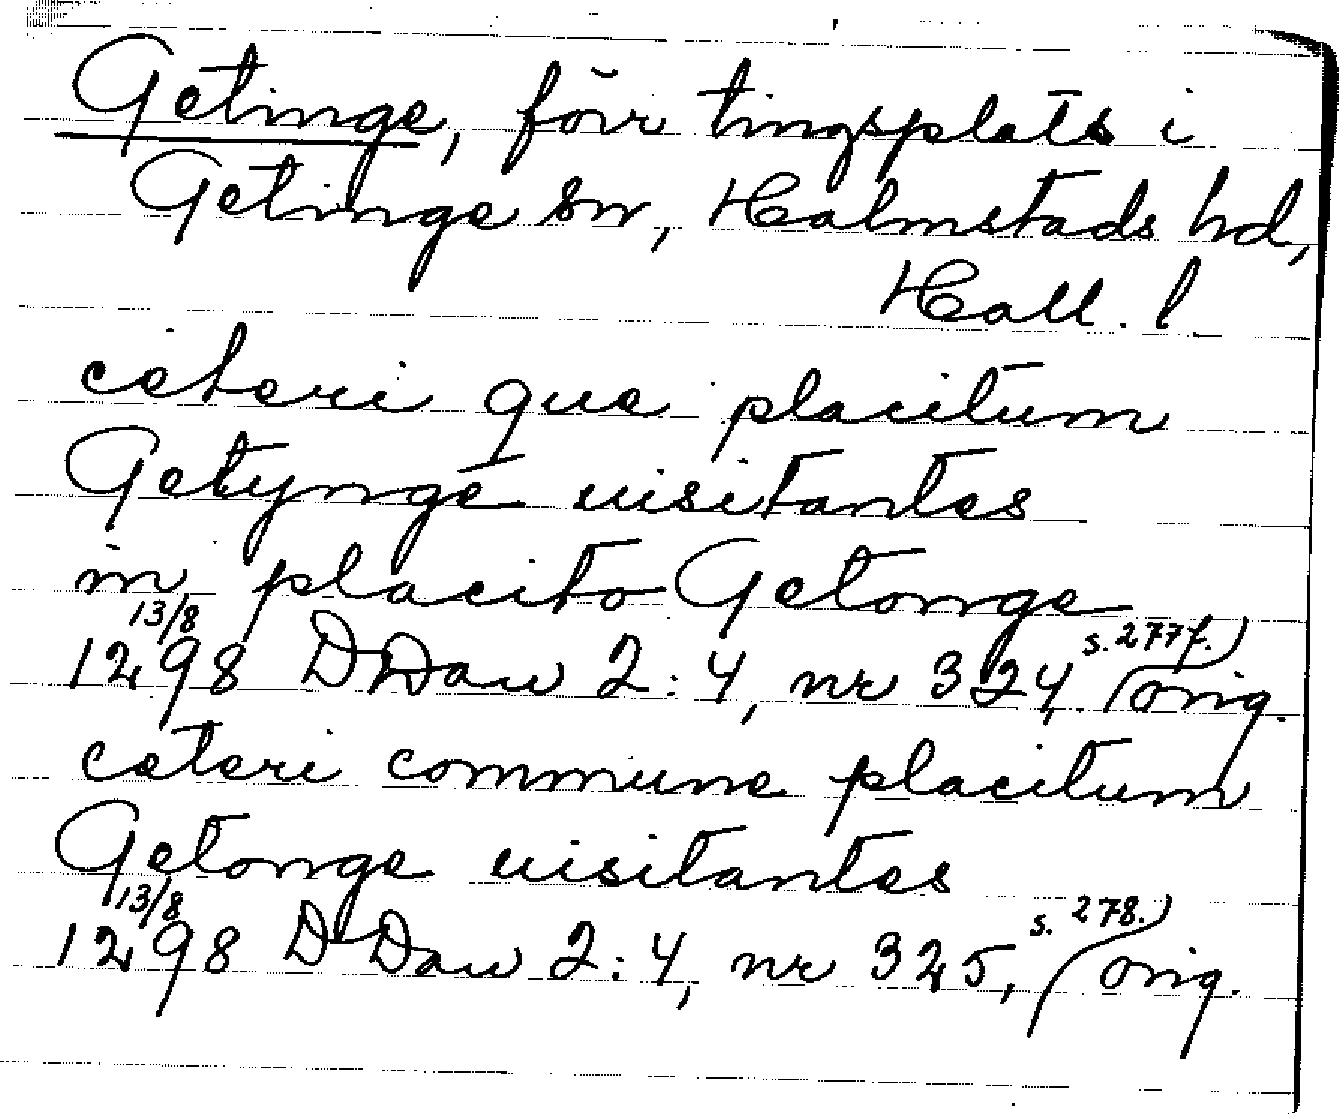 Getinge, förr tingsplats i
Getinge sn, Halmstads hd,
Hall. l.
ceteri que placitum
Getynge visitantes
in placito Getonge
1298 13/8 DDan 2:4, nr 324, s. 277f. orig.
ceteri commune placitum
Getonge visitantes
1298 13/8 DDan 2:4, nr 325, s. 278. orig.